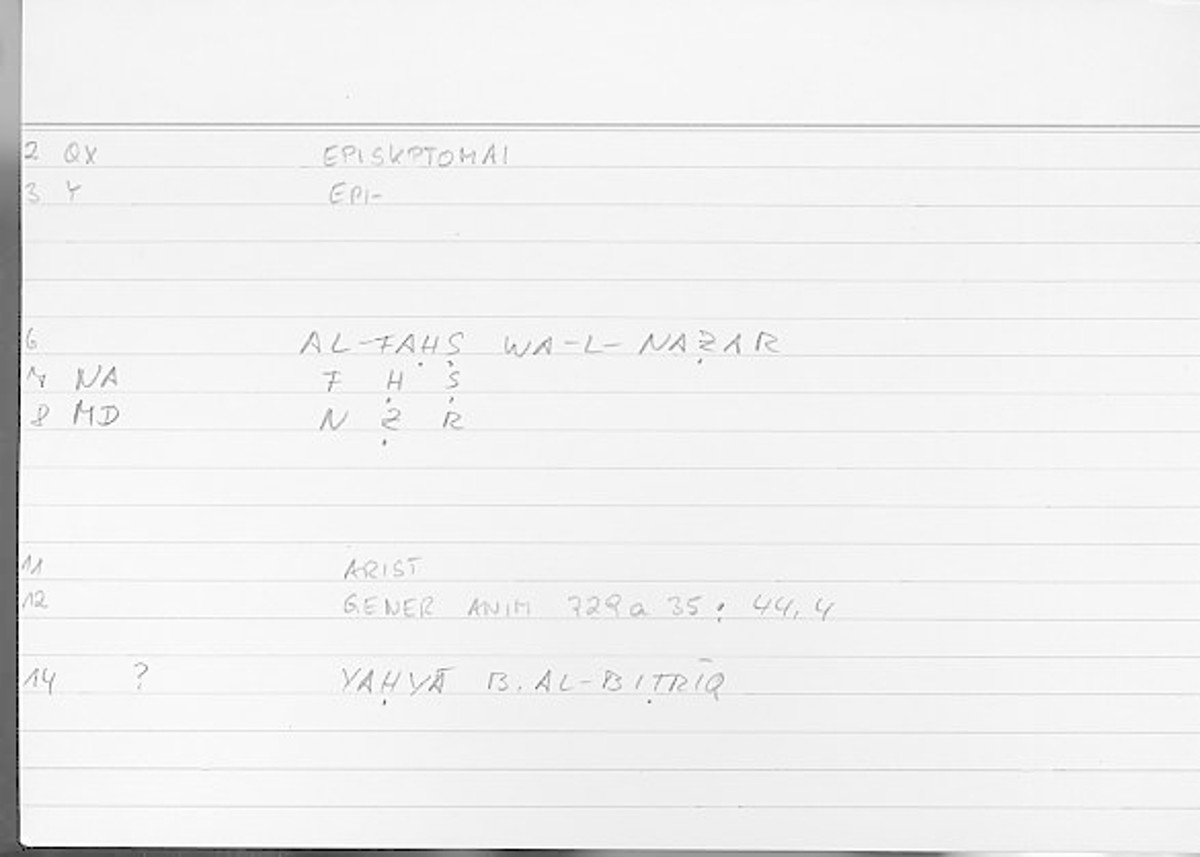 2 QX EPISKPTOMAI
3 Y EPI-
6 AL-FAḤṢ WA-L-NAẒAR
7 NA F Ḥ Ṣ
8 MD N Ẓ R
11 ARIST
12 GENER ANIM 729a 35 : 44,4
14 ? YAḤYĀ B. AL-BIṬRĪQ